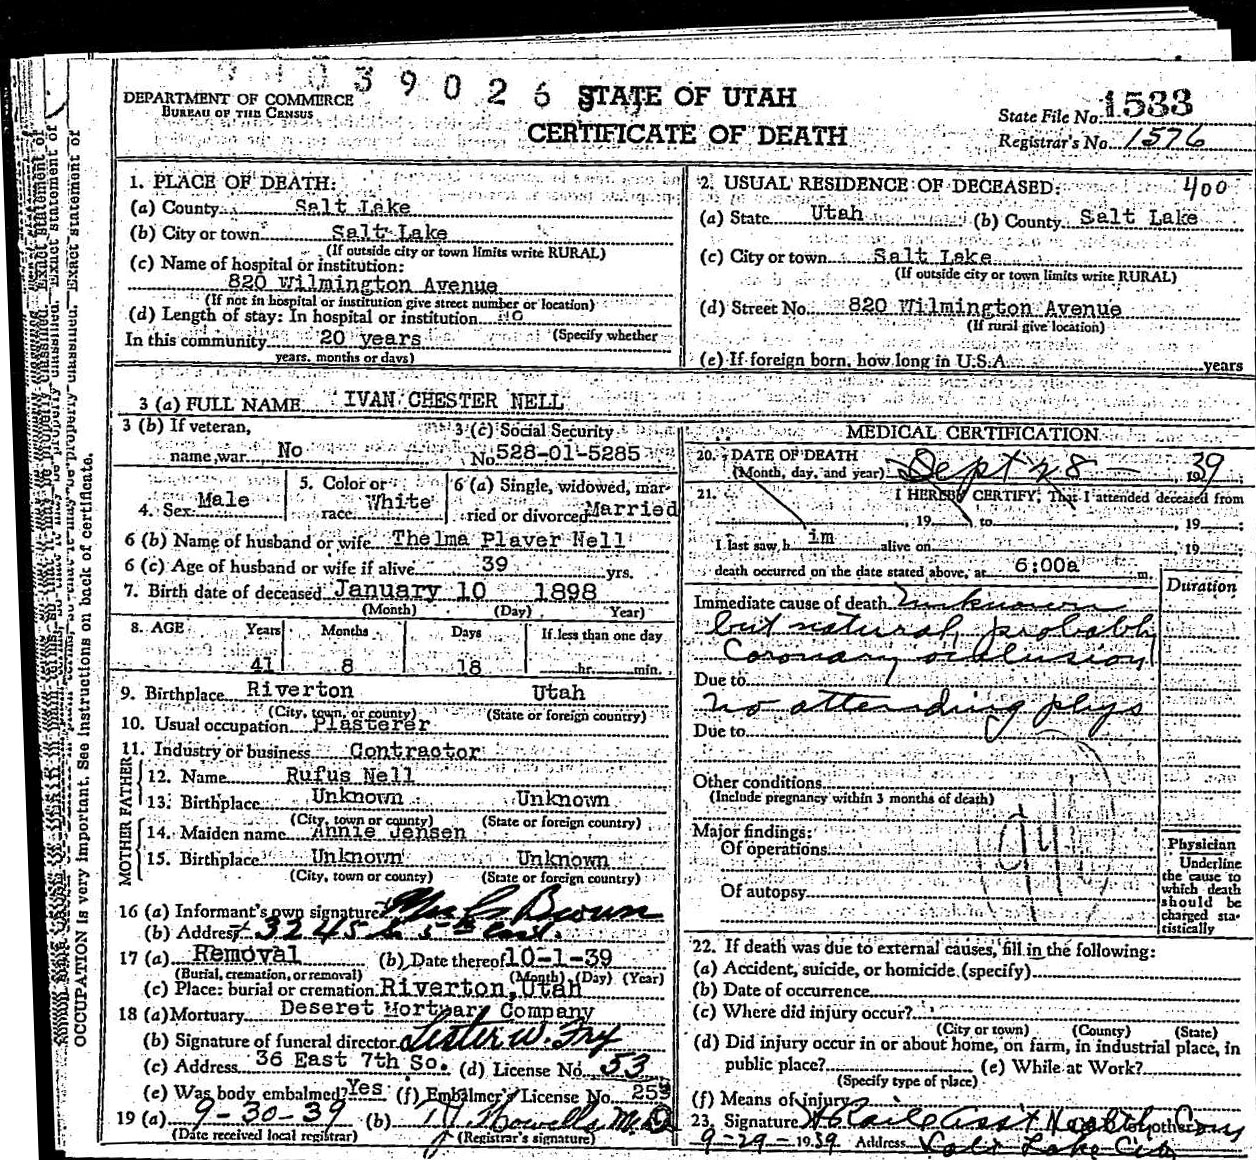 39026
DEPARTMENT OF COMMERCE
BUREAU OF THE CENSUS
STATE OF UTAH
CERTIFICATE OF DEATH
State File No. 1533
Registrar's No. 1576
1. PLACE OF DEATH:
(a) County Salt Lake
(b) City or town Salt Lake
(If outside city or town limits write RURAL)
(c) Name of hospital or institution:
820 Wilmington Avenue
(If not in hospital or institution give street number or location)
(d) Length of stay: In hospital or institution NO
(Specify whether
In this community 20 years
years, months or days)
2. USUAL RESIDENCE OF DECEASED: 400
(a) State Utah (b) County Salt Lake
(c) City or town Salt Lake
(If outside city or town limits write RURAL)
(d) Street No. 820 Wilmington Avenue
(If rural give location)
(e) If foreign born, how long in U.S.A. years
3 (a) FULL NAME IVAN CHESTER NELL
3 (b) If veteran, name war No
3 (c) Social Security No. 528-01-5285
4. Sex Male
5. Color or race White
6 (a) Single, widowed, married or divorced Married
6 (b) Name of husband or wife Thelma Plaver Nell
6 (c) Age of husband or wife if alive 39 yrs.
7. Birth date of deceased January 10 1898
(Month) (Day) (Year)
8. AGE Years Months Days If less than one day
41 8 18 hr. min.
9. Birthplace Riverton Utah
(City, town, or county) (State or foreign country)
10. Usual occupation Plasterer
11. Industry or business Contractor
FATHER
12. Name Rufus Nell
13. Birthplace Unknown Unknown
(City, town or county) (State or foreign country)
MOTHER
14. Maiden name Annie Jensen
15. Birthplace Unknown Unknown
(City, town or county) (State or foreign country)
16 (a) Informant's own signature Brown
(b) Address 3245 So 5th East.
17 (a) Removal (b) Date thereof 10-1-39
(Burial, cremation, or removal) (Month) (Day) (Year)
(c) Place: burial or cremation Riverton, Utah
18 (a) Mortuary Deseret Mortuary Company
(b) Signature of funeral director Lester W. Fry
(c) Address 36 East 7th So. (d) License No. 53
(e) Was body embalmed? Yes (f) Embalmer's License No. 253
19 (a) 9-30-39 (b) Howells M.D.
(Date received local registrar) (Registrar's signature)
MEDICAL CERTIFICATION
20. DATE OF DEATH
(Month, day, and year) Sept 28 - 1939
21. I HEREBY CERTIFY, That I attended deceased from
, 19 to , 19 ;
I last saw him alive on , 19
death occurred on the date stated above, at 6:00a m.
Duration
Immediate cause of death Unknown
but natural, probably
Coronary occlusion
Due to
No attending phys
Due to
Other conditions
(Include pregnancy within 3 months of death)
Major findings:
Of operations
Of autopsy
94
Physician
Underline
the cause to
which death
should be
charged sta-
tistically
22. If death was due to external causes, fill in the following:
(a) Accident, suicide, or homicide (specify)
(b) Date of occurrence
(c) Where did injury occur?
(City or town) (County) (State)
(d) Did injury occur in or about home, on farm, in industrial place, in
public place? (e) While at Work?
(Specify type of place)
(f) Means of injury
23. Signature Asst Health Com
9-29-1939 Address Salt Lake City
OCCUPATION is very important. See instructions on back of certificate.
Exact statement of